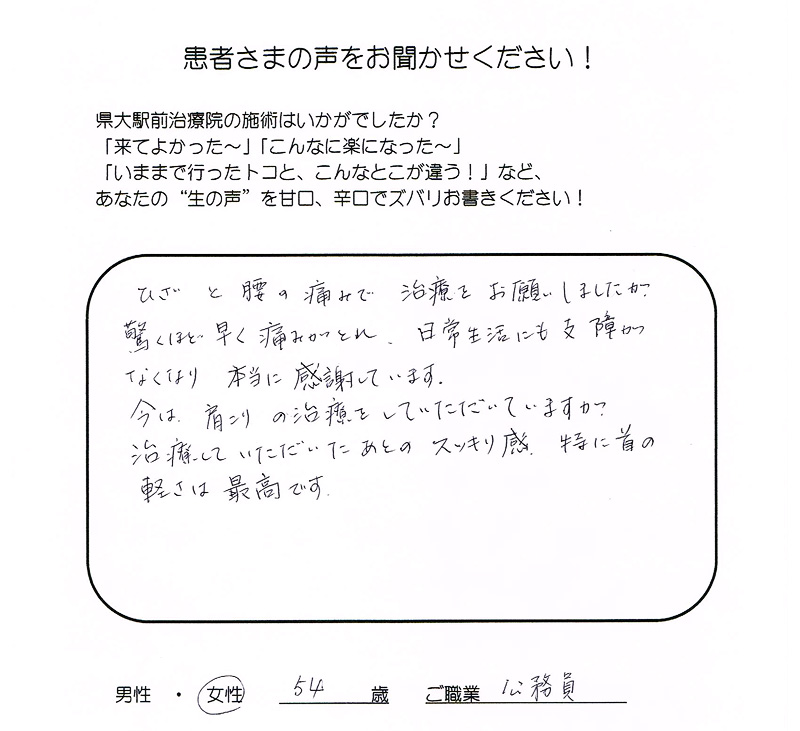 患者さまの声をお聞かせください！
県大駅前治療院の施術はいかがでしたか？
「来てよかった〜」「こんなに楽になった〜」
「いままで行ったトコと、こんなとこが違う！」など、
あなたの“生の声”を甘口、辛口でズバリお書きください！
ひざと腰の痛みで治療をお願いしましたが
驚くほど早く痛みがとれ、日常生活にも支障が
なくなり本当に感謝しています。
今は、肩こりの治療をしていただいていますが
治療していただいたあとのスッキリ感、特に首の
軽さは最高です。
男性・女性 54歳 ご職業 公務員